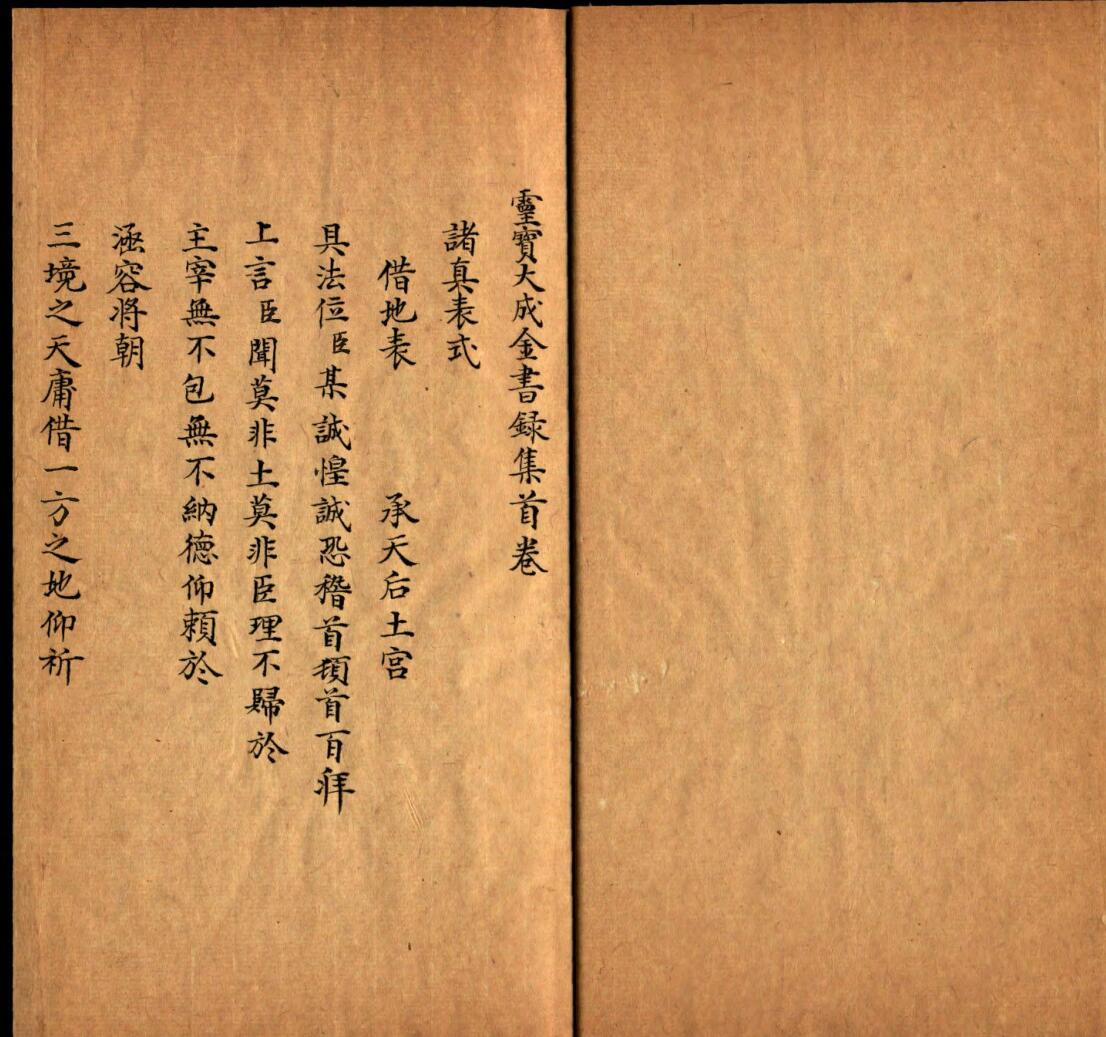 靈寶大成金書録集首卷
諸真表式
借地表 承天后土宫
具法位臣某誠惶誠恐稽首頓首百拜
上言臣聞莫非土莫非臣理不歸於
主宰無不包無不納德仰頼於
涵容将朝
三境之天庸借一方之地仰祈